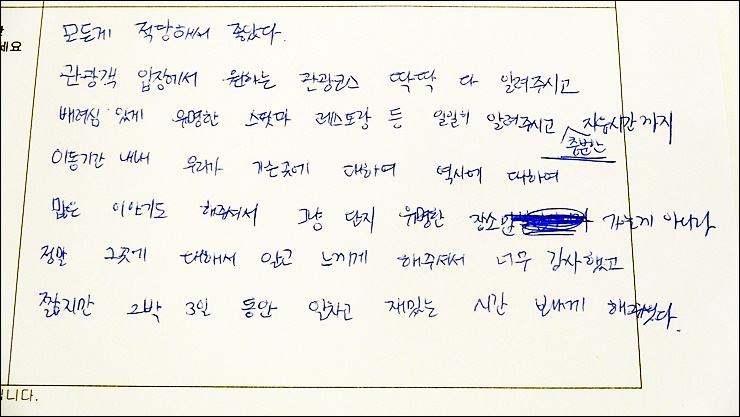 세요
모든게 적당해서 좋았다.
관광객 입장에서 원하는 관광코스 딱딱 다 알려주시고
배려심 있게 유명한 스팟마 레스토랑 등 일일히 알려주시고 충분한 자유시간까지
이동기간 내내 우리가 가는곳에 대하여 역사에 대하여
많은 이야기도 해주셔서 그냥 단지 유명한 장소만 가는게 아니라
정말 그곳에 대해서 알고 느끼게 해주셔서 너무 감사했고
짧지만 2박 3일 동안 알차고 재밌는 시간 보내게 해주셨다.
입니다.